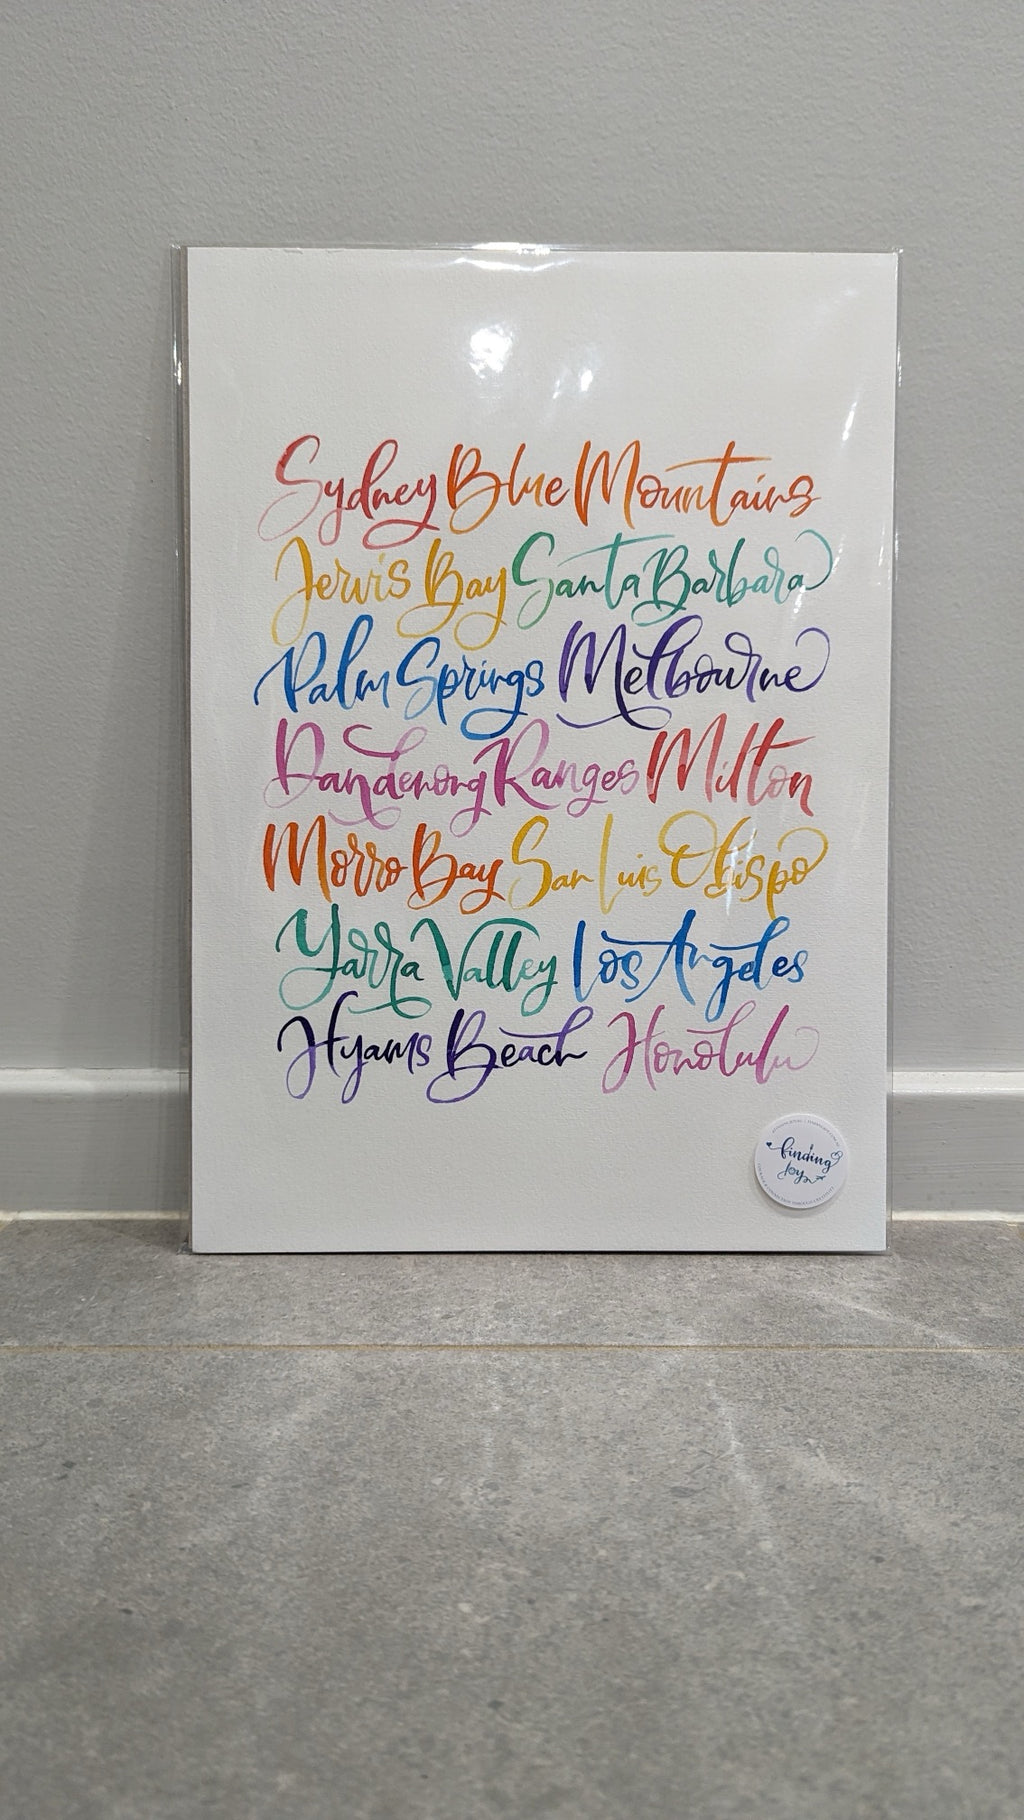 Sydney Blue Mountains
Jervis Bay Santa Barbara
Palm Springs Melbourne
Dandenong Ranges Milton
Morro Bay San Luis Obispo
Yarra Valley Los Angeles
Hyams Beach Honolulu
finding
joy